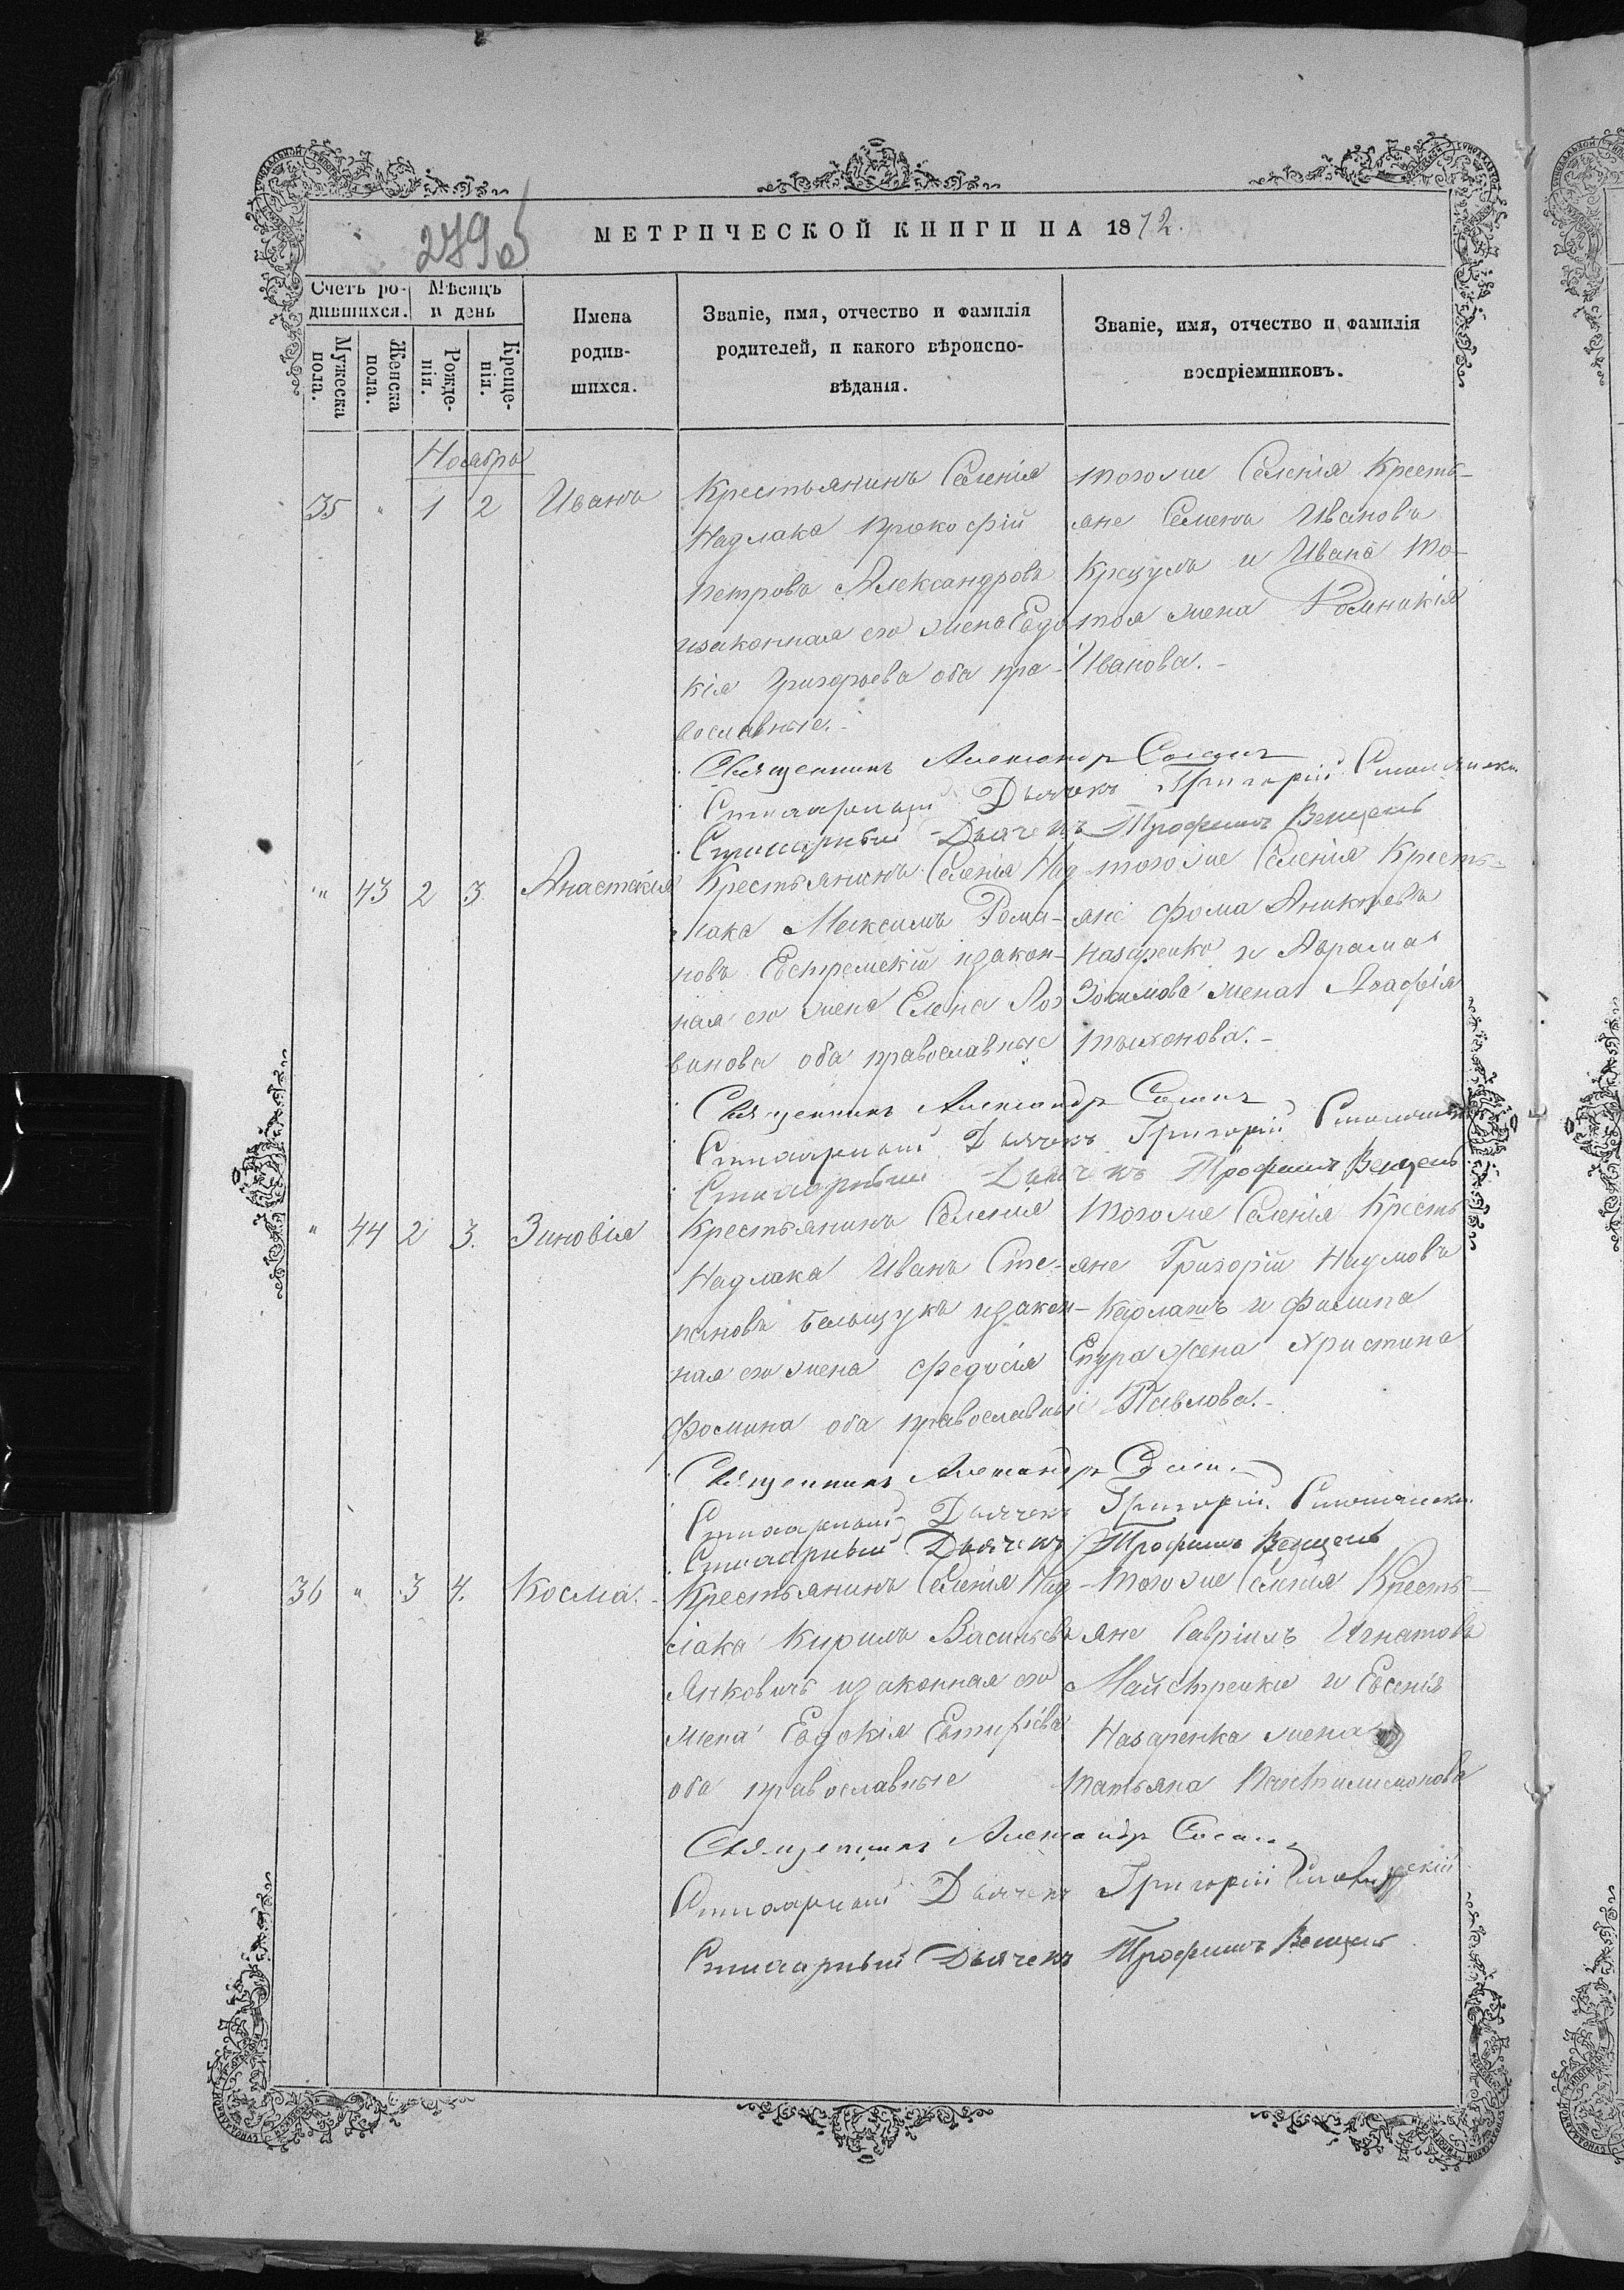 279 об
МЕТРИЧЕСКОЙ КНИГИ НА 1872.
Счетъ ро-
дившихся.
Мѣсяцъ
и день
Мужеска
пола.
Женска
пола.
Рожде-
нія.
Креще-
нія.
Имена
родив-
шихся.
Званіе, имя, отчество и фамилія
родителей, и какого вѣроиспо-
вѣданія.
Званіе, имя, отчество и фамилія
воспріемниковъ.
Ноябрь
35 " 1 2 Иванъ
Крестьянинъ Селенія
Надлака Прокофій
Петровъ Александровъ
изаконная его жена Евдо
кія Григорьева оба пра-
вославные.-
тогоже Селенія Кресть-
яне Семенъ Ивановъ
Крецулъ и Ивана
тоя жена
Иванова.-
Священникъ Александръ
Стихарный Дьячекъ Григорій
Стихарный Дьячекъ Трофимъ Венцель
" 43 2 3 Анастасія
Крестьянинъ Селенія Над
лака Максимъ Рома-
новъ изакон-
ная его жена Елена Лог
винова оба православные
тогоже Селенія Кресть-
яне Фома Аникіевъ
Назаренко и Аврама
Зотимова жена Агафія
Тихонова.-
Священникъ Александръ
Стихарный Дьячекъ Григорій
Стихарный Дьячекъ Трофимъ Венцель
" 44 2 3. Зиновія
Крестьянинъ Селенія
Надлака Иванъ Сте-
пановъ изакон-
ная его жена Федосія
Фомина оба православные
Тогоже Селенія Кресть
яне Григорій Наумовъ
Карлашъ и Филипа
жена Христина
Павлова.-
Священникъ Александръ
Стихарный Дьячекъ Григорій
Стихарный Дьячекъ Трофимъ Венцель
36 " 3 4. Косма.-
Крестьянинъ Селенія Над-
лака Кирилъ Васильевъ
Янковичъ изаконная его
жена Евдокія Евтифіева
оба православные
Тогоже Селенія Кресть-
яне Гавріилъ Игнатовъ
Майстренко и Евсенія
Назаренка жена
Татьяна Пантилимонова
Священникъ Александръ
Стихарный Дьячекъ Григорій
Стихарный Дьячекъ Трофимъ Венцель